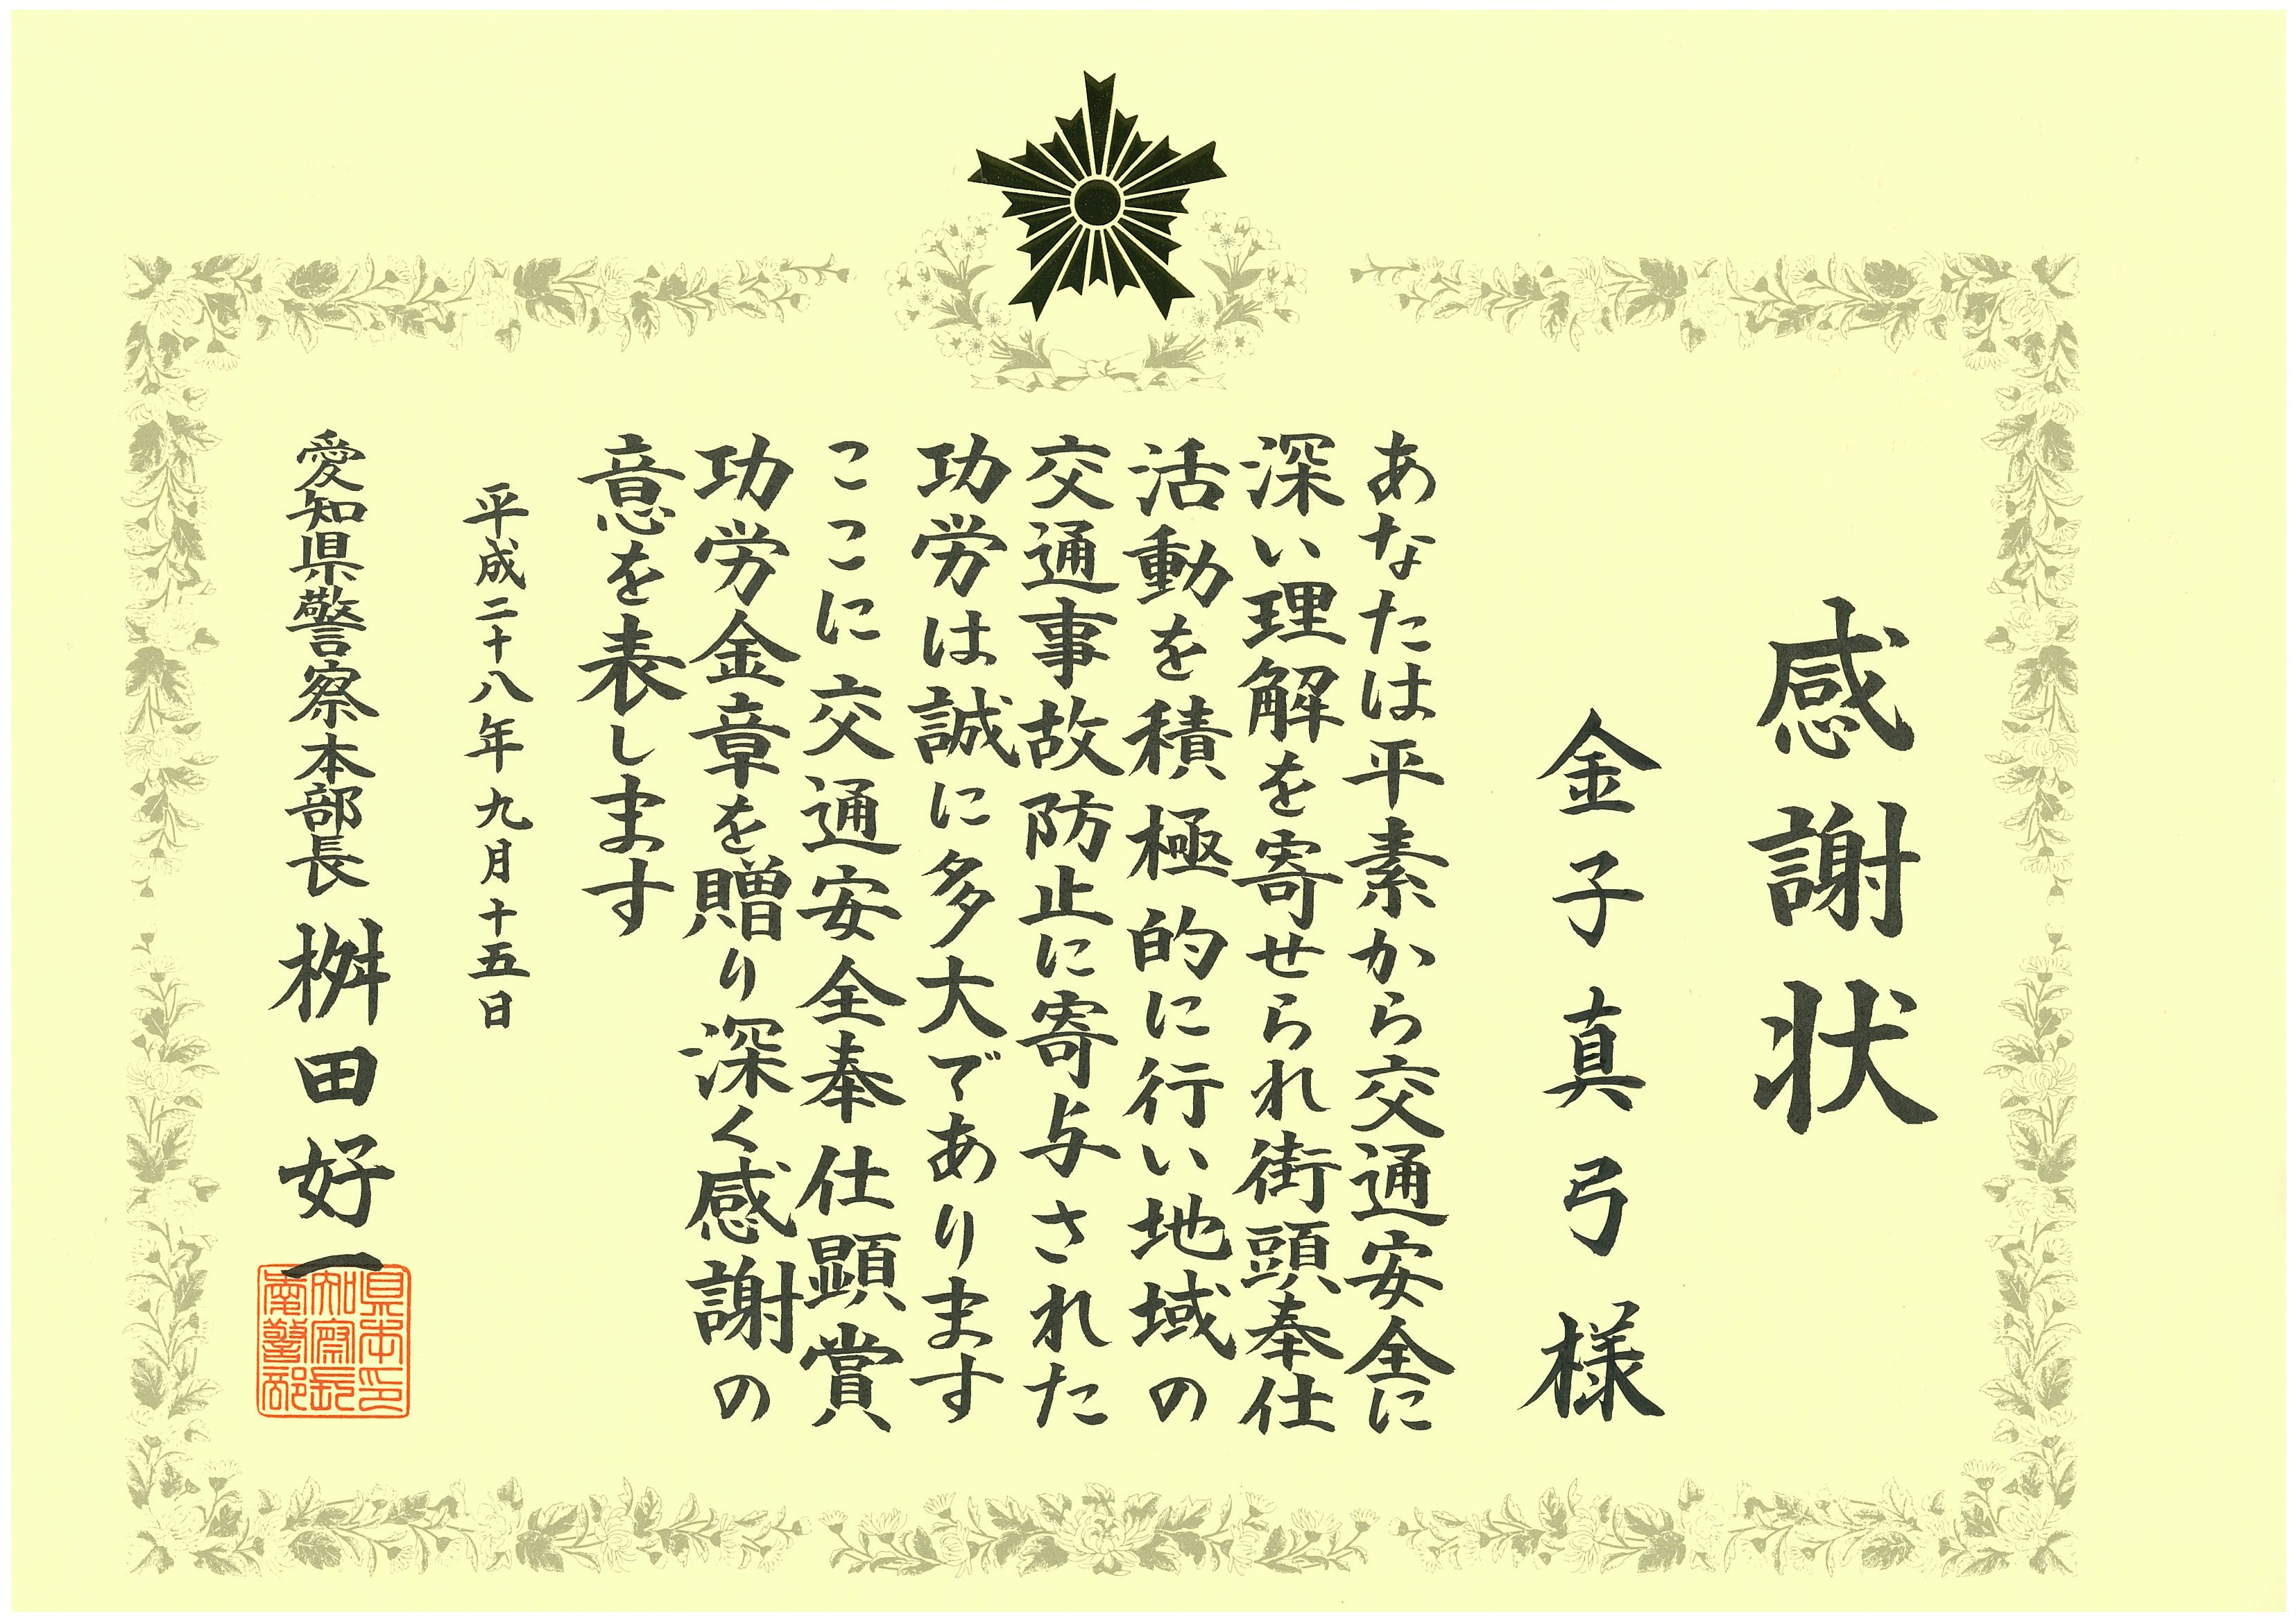 感謝状
金子真弓様
あなたは平素から交通安全に
深い理解を寄せられ街頭奉仕
活動を積極的に行い地域の
交通事故防止に寄与された
功労は誠に多大であります
ここに交通安全奉仕顕賞
功労金章を贈り深く感謝の
意を表します
平成二十八年九月十五日
愛知県警察本部長 桝田好一
愛知県警察本部長印